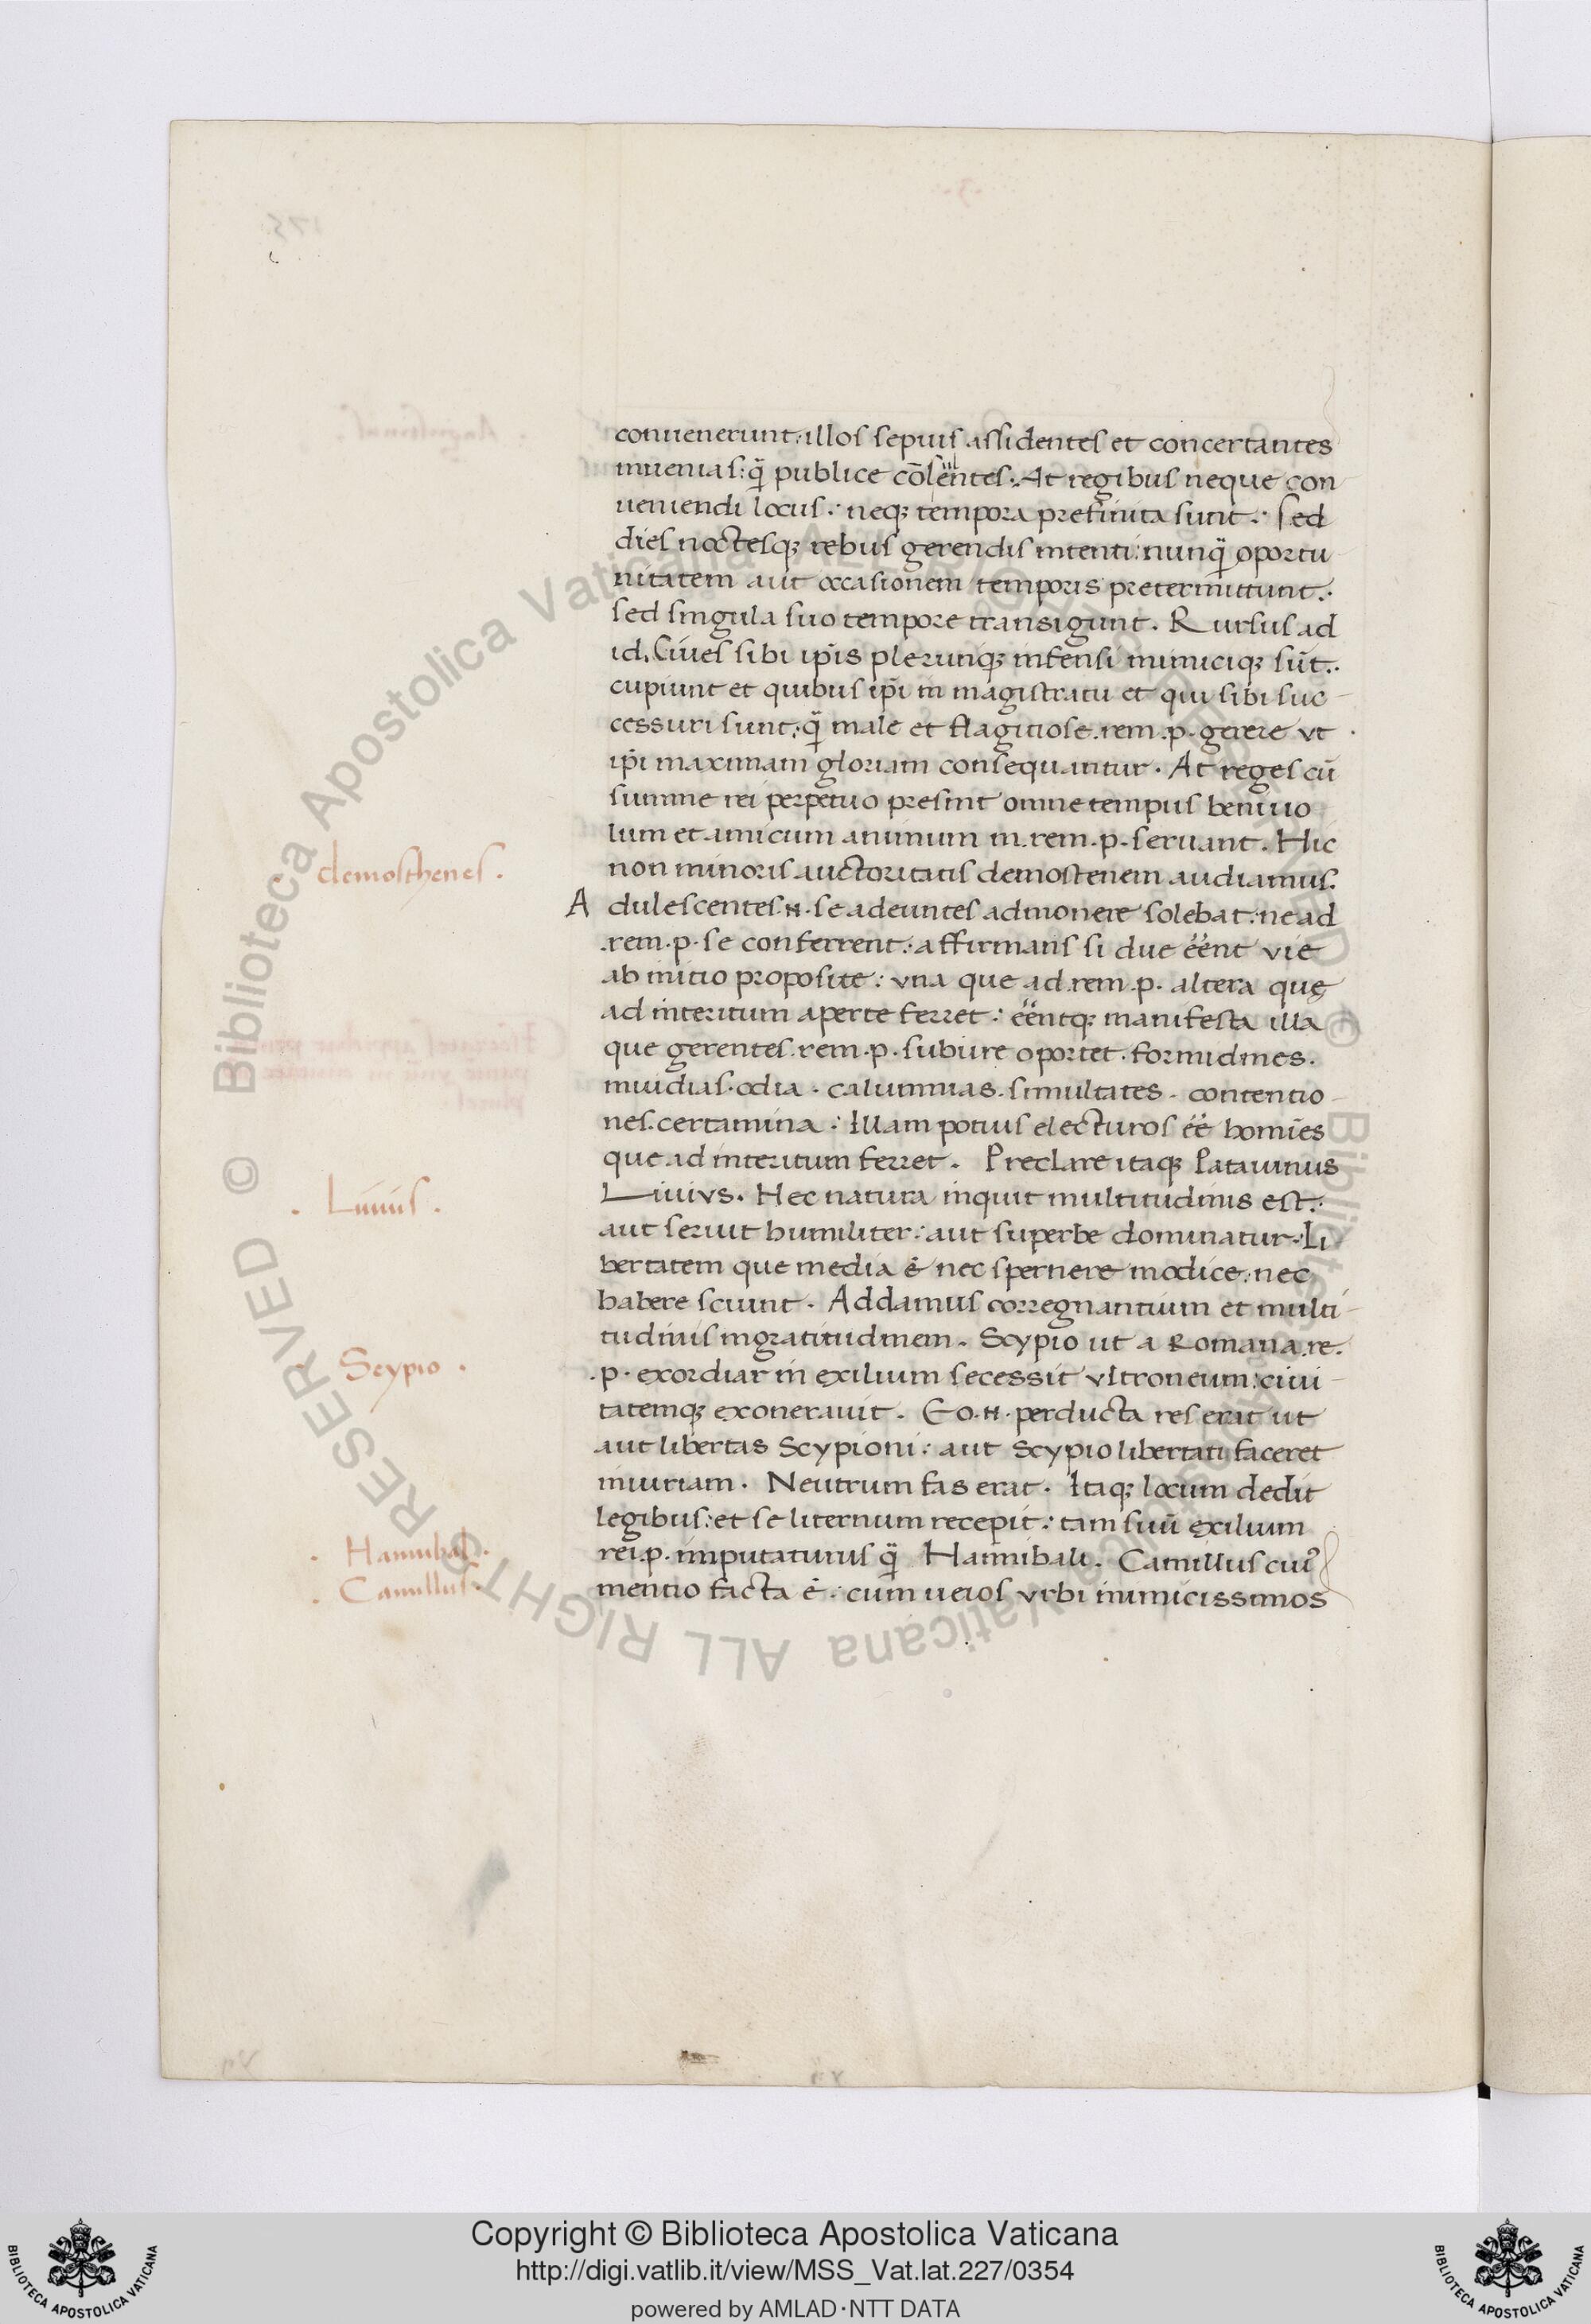 conuenerunt: illos sepius assidentes et concertantes
inuenias: q̄ publice cōsulentes. At regibus neque con
ueniendi locus: neq; tempora prefinita sunt: sed
dies noctesq; rebus gerendis intenti: nunq̄ oportu
nitatem aut occasionem temporis pretermittunt.
sed singula suo tempore transigunt. Rursus ad
id. Ciues sibi ip̄is plerunq; infensi inimiciq; sūt.
cupiunt et quibus ip̄i in magistratu et qui sibi suc
cessuri sunt: q̄ male et flagitiose .rem .p. gerere vt
ip̄i maximam gloriam consequantur. At reges cū
summe rei perpetuo presint omne tempus beniuo
lum et amicum animum in .rem .p. seruant. Hic
demosthenes.
non minoris auctoritatis demostenem audiamus.
Adulescentes .n. se adeuntes admonere solebat: ne ad
.rem .p. se conferrent: affirmans si due ēēnt vie
ab initio proposite: vna que ad .rem .p. altera que
ad interitum aperte ferret: ēēntq; manifesta illa
que gerentes .rem .p. subire oportet. formidines.
inuidias. odia. calumnias. simultates. contentio
nes. certamina: Illam potius electuros ēē homīes
que ad interitum ferret. Preclare itaq; Patauinus
. Liuius.
Liuius. Hec natura inquit multitudinis est:
aut seruit humiliter: aut superbe dominatur. Li
bertatem que media ē nec spernere modice: nec
habere sciunt. Addamus corregnantium et multi
tudinis ingratitudinem. Scypio ut a Romana .re.
Scypio.
.p. exordiar in exilium secessit vltroneum: ciui
tatemq; exonerauit. Eo .n. perducta res erat ut
aut libertas Scypioni: aut Scypio libertati faceret
iniuriam. Neutrum fas erat. Itaq; locum dedit
legibus: et se liternum recepit: tam suū exilium
. Hannibal.
rei .p. imputaturus q̄ Hannibali. Camillus cui9
. Camillus.
mentio facta ē: cum ueios vrbi inimicissimos
© Biblioteca Apostolica Vaticana ALL RIGHTS RESERVED © Biblioteca Apostolica Vaticana ALL RIGHTS RESERVED
Copyright © Biblioteca Apostolica Vaticana
http://digi.vatlib.it/view/MSS_Vat.lat.227/0354
powered by AMLAD·NTT DATA
BIBLIOTECA APOSTOLICA VATICANA
BIBLIOTECA APOSTOLICA VATICANA